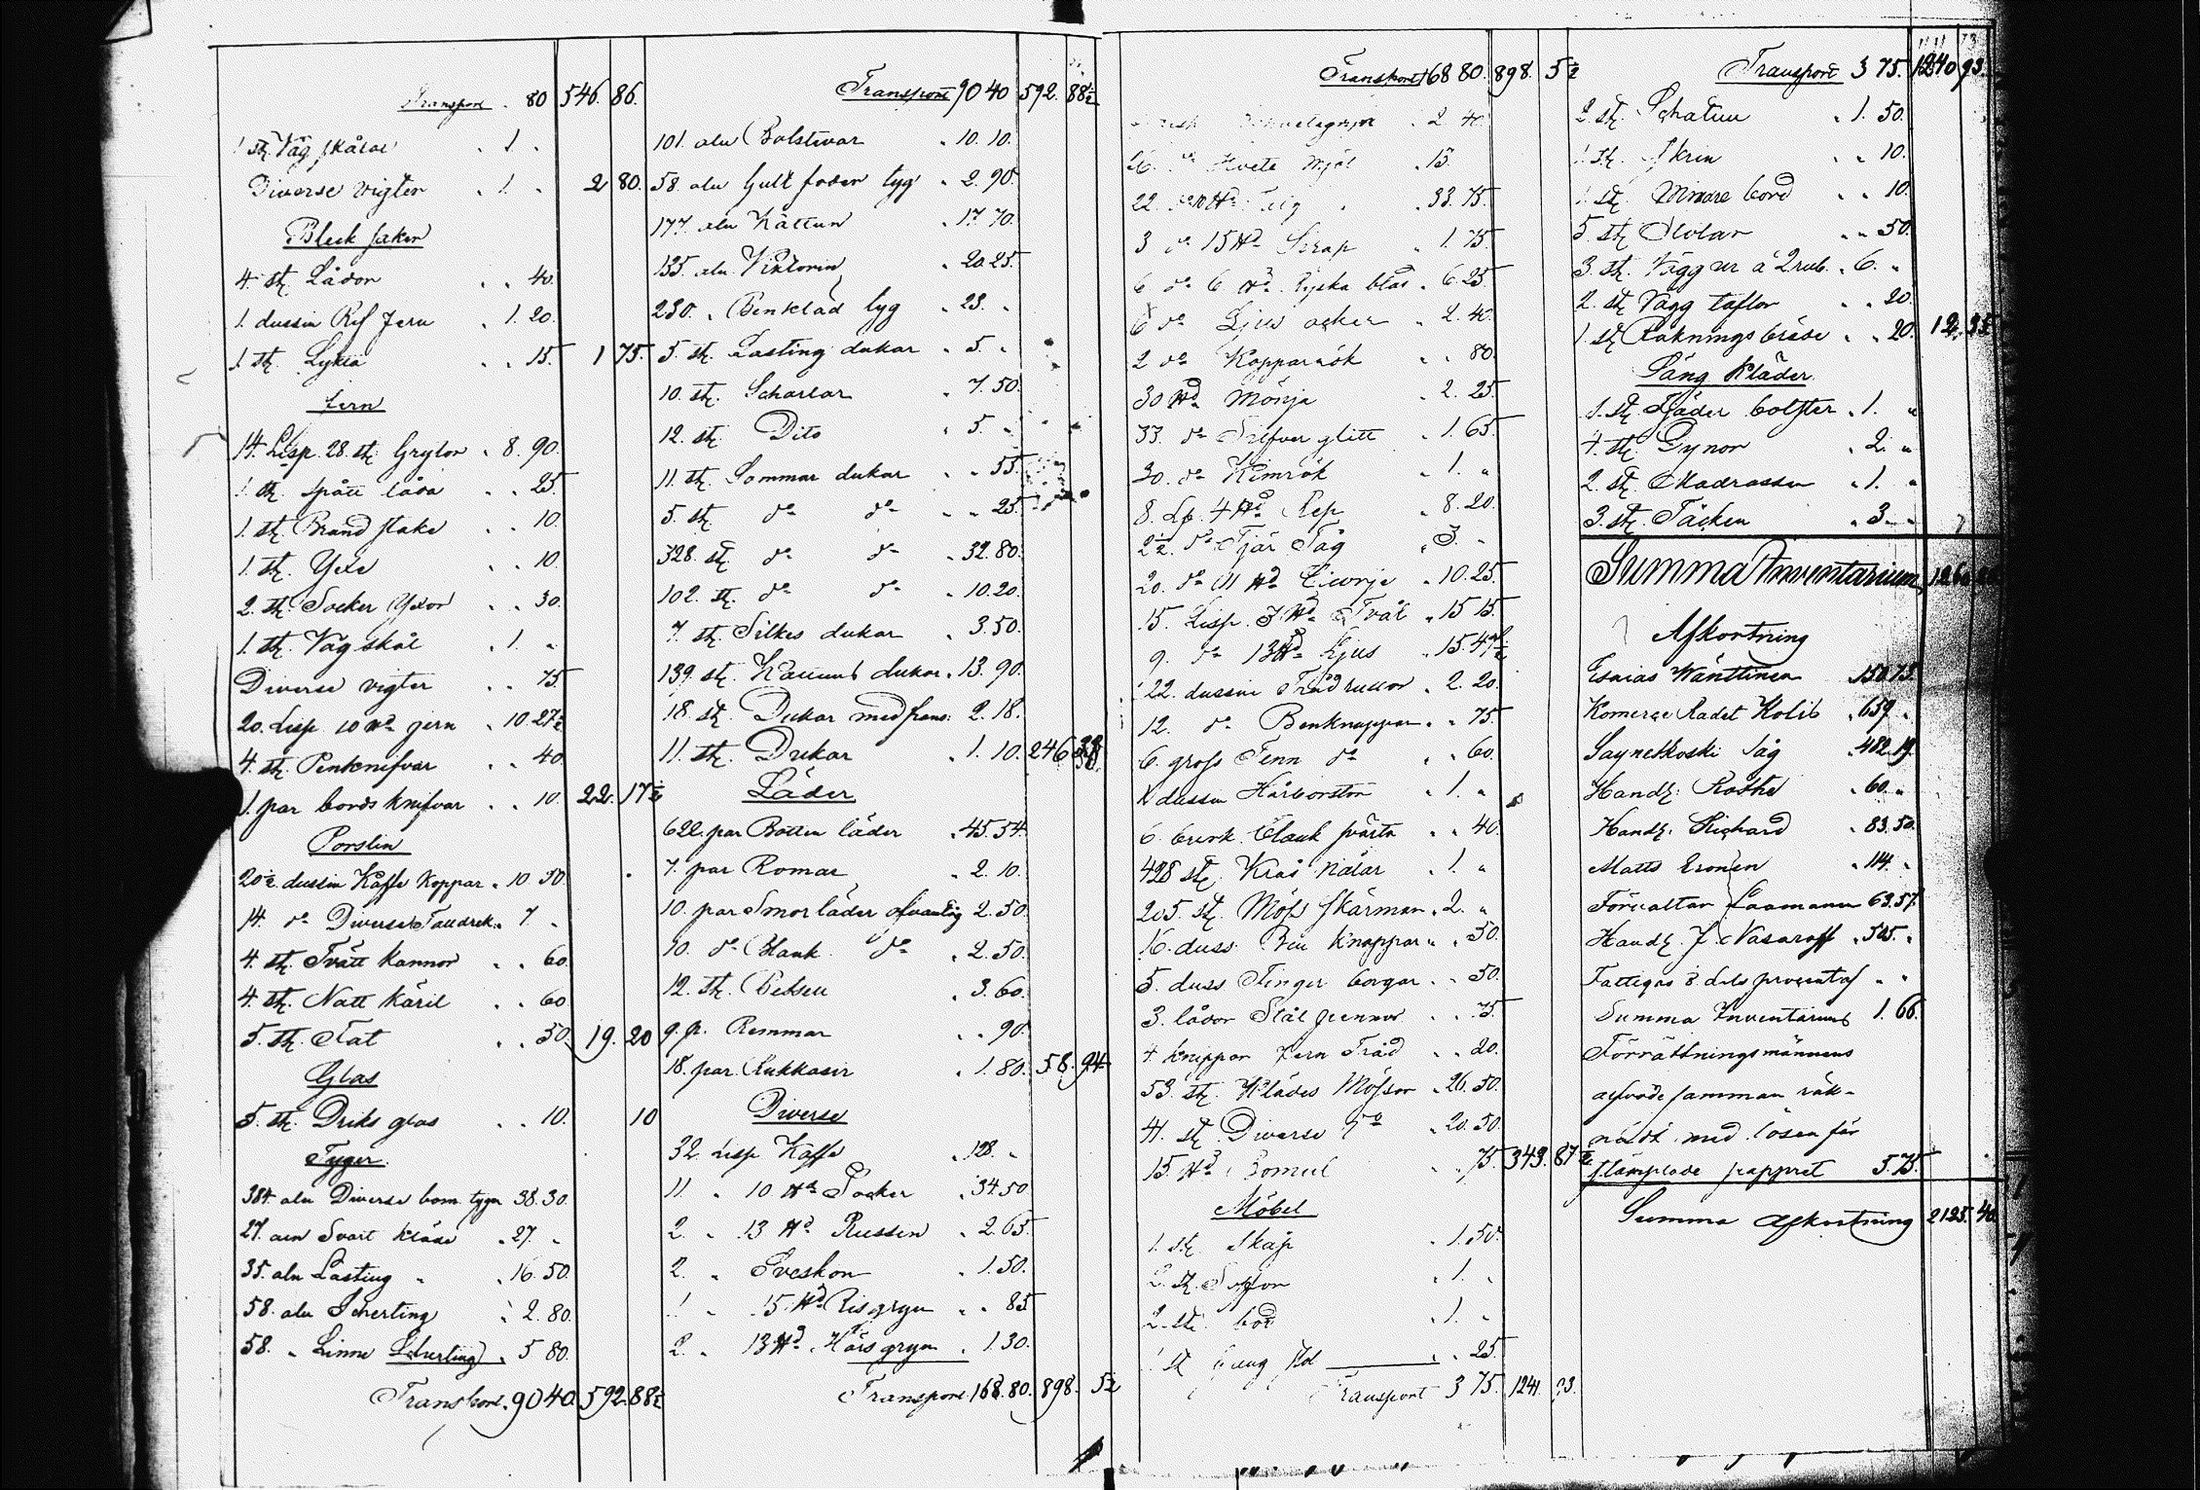 Transport . 80 546. 86.
1 st. Våg skålar . 1 .
Diverse vigter . 1. . 2 80.
Bleck saker
4. st. Lådor . . 40.
1. dussin Rif Jern . 1. 20.
1. st. Lykta . . 15. 1 75.
Jern
14. Lisp. 28. st. Grytor . 8. 90.
1. st. låda . . 25.
1. st. Brand stake . . 10.
1. st. Yxe . . 10
2. st. Socker Yxor . . 30.
1. st. Våg skål . 1. "
Diverse vigter . . 75.
20. Lisp 10 ℔ jern . 10.27½
4. st. Penknifvar . . 40.
1. par bords knifvar . . 10. 22. 17½
Porslin
20½. dussin Kaffe Koppar . 10 50
14. do Diverse . 7 .
4. st. Tvätt kannor . . 60.
4. st. Natt käril . . 60
5. st. Fat . . 50. 19. 20
Glas
5. st. Driks glas . . 10. 10
Tyger.
384. aln Diverse bom. tyger 38.30.
27. aln Svart kläde . 27. .
35. aln Lasting " . 16.50.
58. aln Scherting . 2.80.
58. " Linne Scherting . 5 80.
Transport. 90 40. 592. 88½
Transport 90 40 592. 88½
101. aln Bolstvar . 10. 10.
58. aln Gult foder tyg . 2. 90.
177. aln Kattun . 17 70.
135. aln Viktorin . 20.25.
230. " Benklad tyg . 23. "
5. st. Lasting dukar . 5. .
10. st. Scharlar . 7. 50.
12. st. Dito . 5. .
11. st. Sommar dukar . . 55.
5. st. do do . . 25.
328. st. do do . 32. 80.
102. st. do do . 10.20.
7. st. Silkes dukar . 3.50.
139. st. Kattuns dukar . 13. 90.
18. st. Dukar med frans. 2. 18.
11. st. Dukar . 1. 10. 246
Läder
622. par Botten läder . 45.54.
7. par Romar . 2. 10.
10. par Smorläder 2.50.
10. do Blank do . 2.50.
12. st. Bebseu . 3.60.
9. p. Remmar . . 90.
18. par Rukkasir . 1.80. 58. 94
Diverse
32. Lisp Kaffe . 128. .
11. " 10 ℔ Socker . 34.50
2. " 13 ℔ Russin . 2.65.
2. " Sveskon . 1.50.
1 " 15 ℔ Risgryn . . 85
2. " 13 ℔ gryn . 1.30.
Transport 168. 80. 898. 5½
Transport 168 80. 898. 5½
. 2 40
16. do Hvete mjöl . 15.
22. . 33. 75.
3 do 15 ℔ Sirap . 1. 75
6 do 6 ℔ Ryska blad . 6.25
6 do Ljus . 2. 40.
2 do Kopparrök . . 80.
30 ℔ Mönja . 2. 25.
33. do Silfver glitt . 1. 65.
30. do Kimrök . 1. "
8. Lp. 4 ℔ Rep . 8.20.
2½. do Tjär Tåg . 3. .
20. do 11 ℔ Cicorje . 10.25.
15. Lisp. 3 ℔ Tvål . 15 15.
9. do 13 ℔ Ljus . 15.47½
22. dussin Trådrullor . 2. 20.
12. do Benknappar . . 75
6. gross Tenn do . . 60.
dussin Hårborstar . 1. "
6. burk Blank svärta . . 40.
428 st. nålar . 1. "
205. st. Möss skärmar . 2. "
16. duss. Ben knappar . . 50.
5. duss Finger borgar . . 50.
3. lådor Stål pennor . . 75.
4 knippor Jern Tråd . . 20.
53. st. Klädes Mössor . 26.50.
41. st. Diverse do . 20.50.
15. ℔ Bomul . . 75 343. 87½
Möbel
1. st. Skåp . 1.50.
2. st. Soffor . 1. .
2. st. bord . 1. "
1 st Gung stol . . 25.
Transport 3 75. 1241. 93.
Transport 3 75. 1240 93.
2. st. Schatur . 1. 50.
1. st. Skrin . . 10.
1. st. Mindre bord . . 10.
5. st. Stolar . . 50.
3. st. Väggur a 2 rub. . 6. "
2. st. Vägg taflor . . 20
1. st. Räknings bräde . . 20. 12. 35
Säng kläder
1. st. Fjäder bolster . 1. "
4. st. Dynor . 2. "
2. st. Madrasser . 1. "
3. st. Täcken . 3. .
Summa Inventarium
Afkortning
Esaias Wänttinen . 150.75.
Komerse Radet Kolib . 659 .
Saynetkoski Såg . 482.19.
Handl. Rothe . 60. "
Handl. Richard . 83.50.
Matts Eronen . 114. .
Förvaltar Laamanen 63.57.
Handl. J. Nasaroff . 505. .
Fattigas 8 dels procent af . "
Summa Inventarium 1. 66.
Förrättningsmännens
arfvode samman räk-
nadt med lösen för
stämplade pappret 5.75.
Summa afkortning 2125. 40.